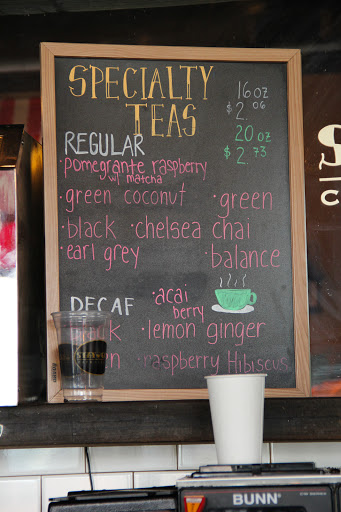 SPECIALTY
TEAS
16 oz
$2.06
20 oz
$2.73
REGULAR
·pomegrante raspberry
w/ matcha
·green coconut ·green
·black ·chelsea chai
·earl grey ·balance
DECAF ·acai
berry
·lemon ginger
·raspberry Hibiscus
BUNN®